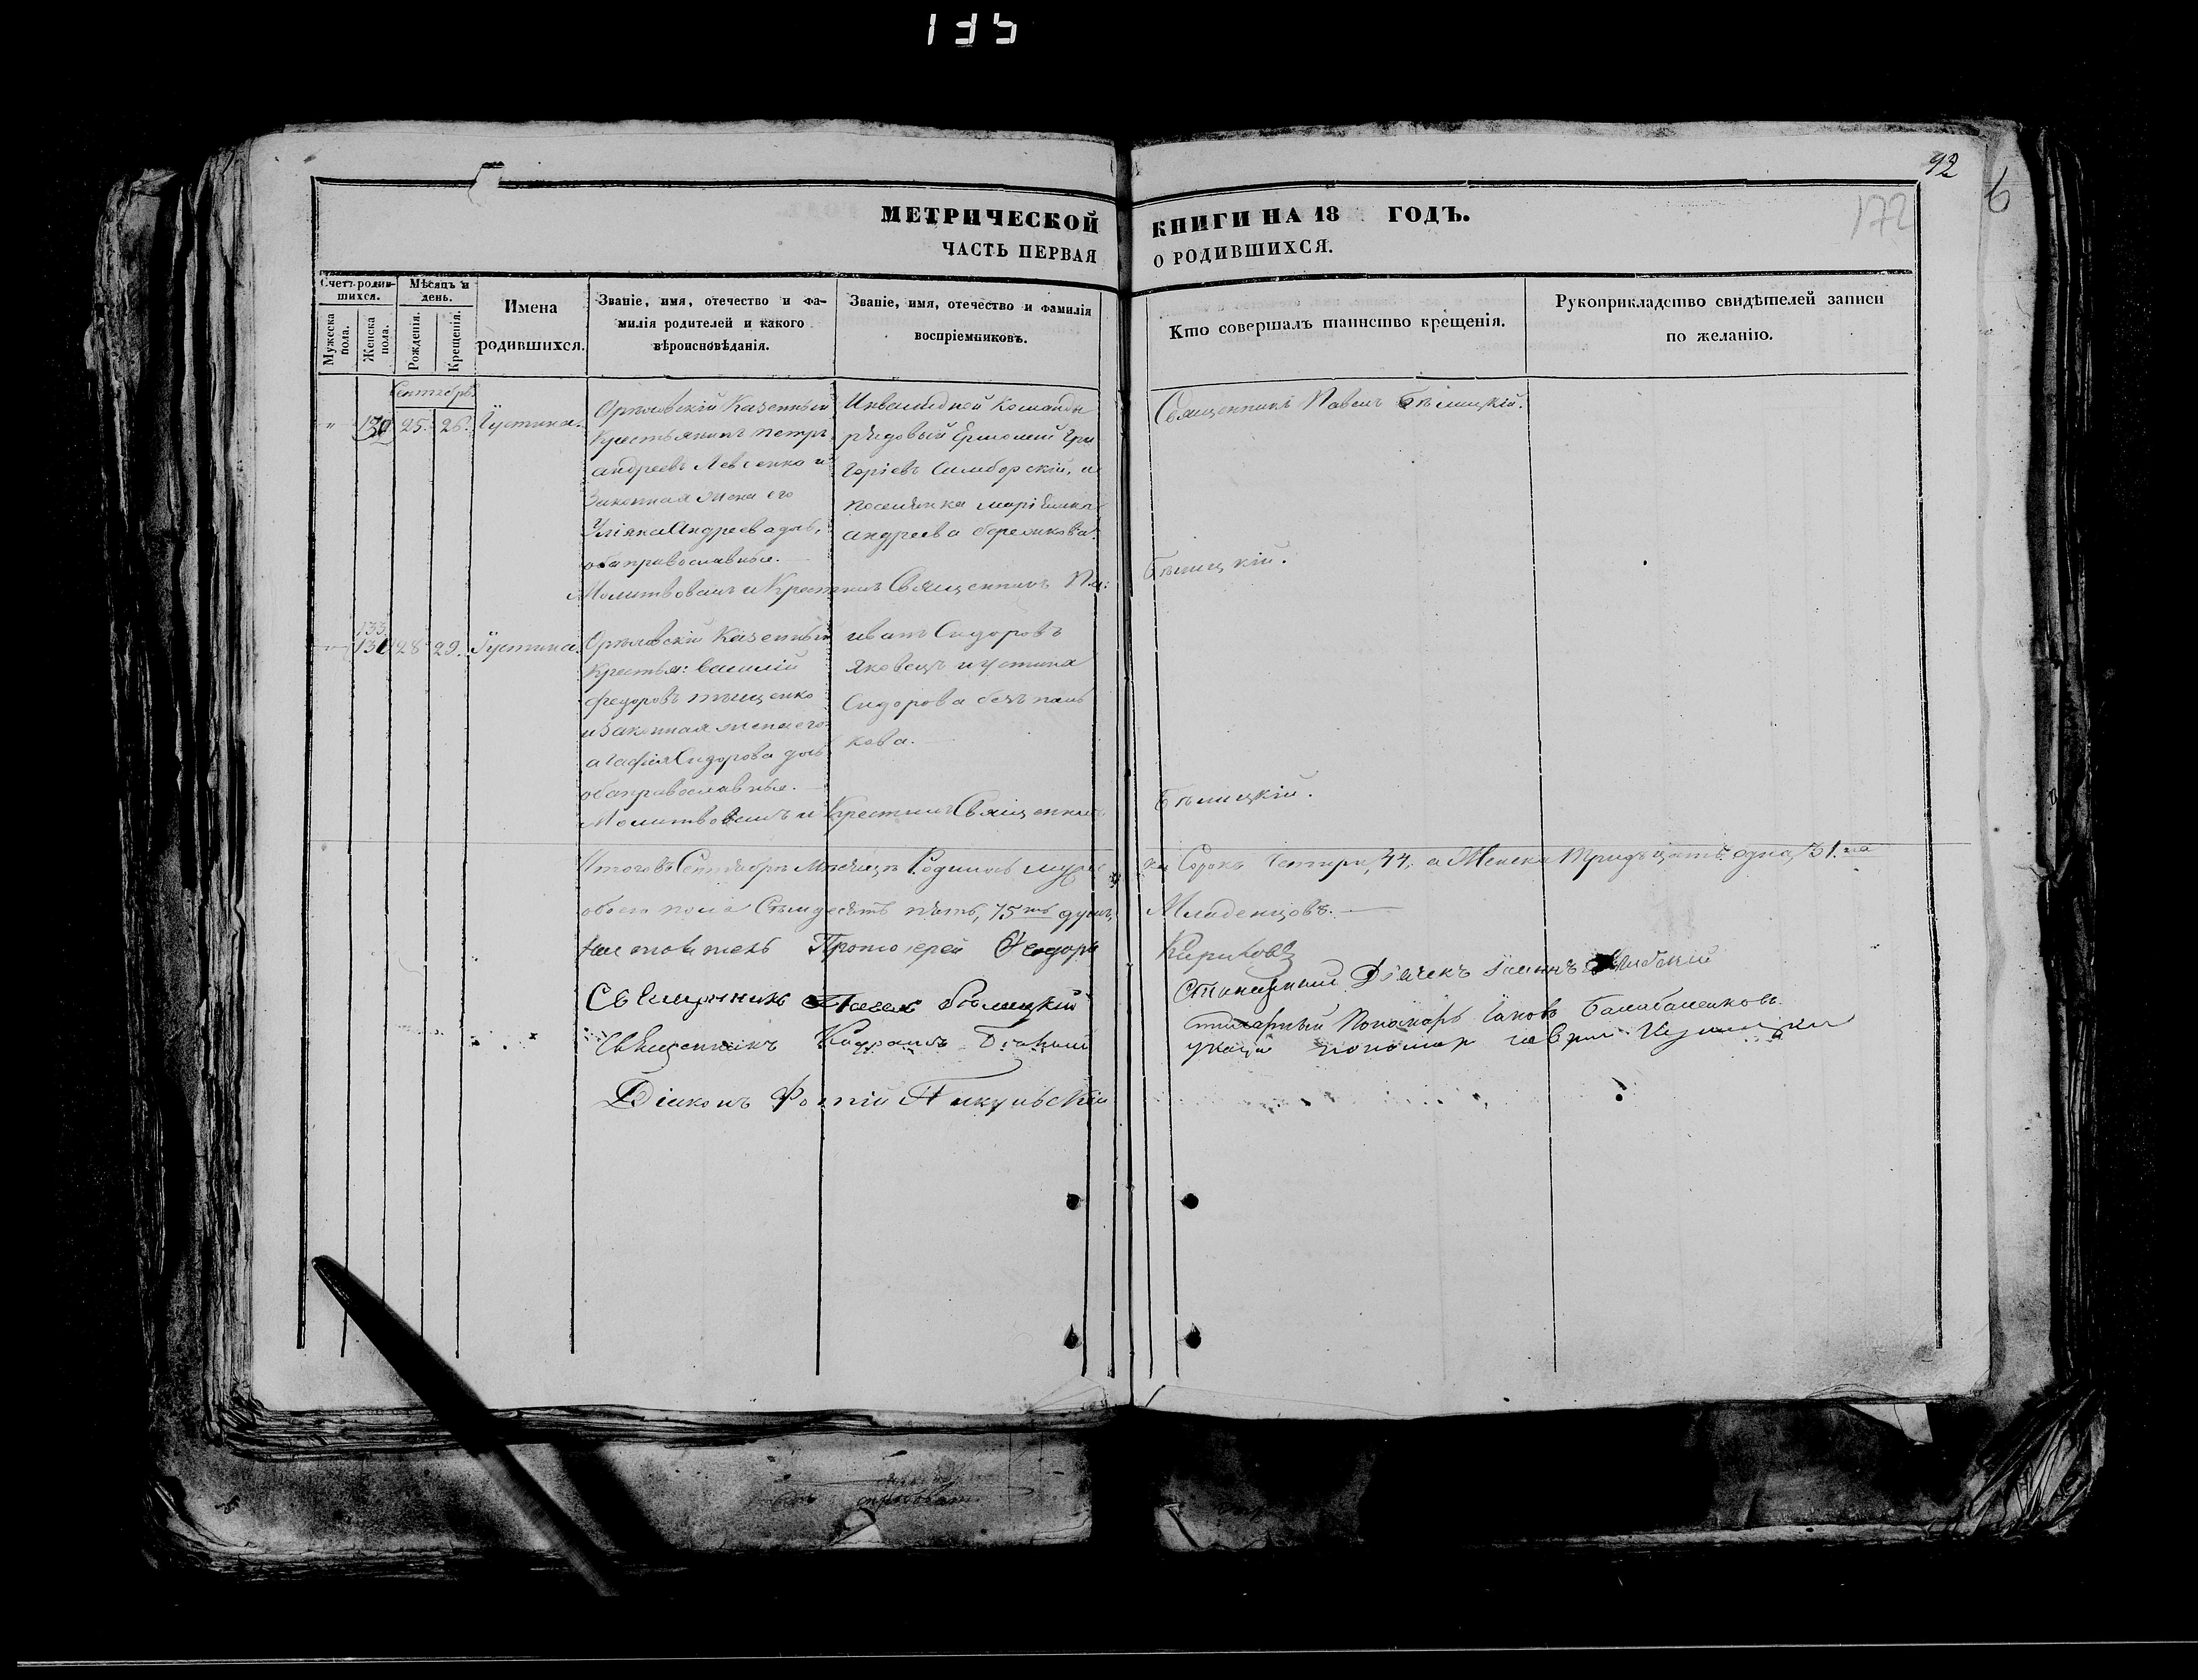 135
92
6
172
МЕТРИЧЕСКОЙ КНИГИ НА 18 ГОДЪ.
ЧАСТЬ ПЕРВАЯ О РОДИВШИХСЯ.
Счетъ родившихся.
Мужеска пола.
Женска пола.
Мѣсяцъ и день.
Рожденія.
Крещенія.
Имена родившихся.
Званіе, имя, отечество и фамилія родителей и какого вѣроисповѣданія.
Званіе, имя, отечество и фамилія воспріемниковъ.
Кто совершалъ таинство крещенія.
Рукоприкладство свидѣтелей записи по желанію.
Сентябрь
130 25. 26. Іустина.
Орѣховскій Казенный
Крестьянинъ петръ
андреевъ Левченко и
Законная жена его
Уліяна Андреева доч,
оба православные.
Инвалидной команды
рядовый Ермолай Гри
горіевъ Самборскій, и
поселянка
андреева
Священникъ Павелъ Бѣлицкій.
Молитвовалъ и Крестилъ Священникъ Па: Бѣлицкій.
133
131 28 29. Іустина.
Орѣховскій Казенный
Крестья: Василій
федоровъ тищенко
и Законная жена его
агафія Сидорова доч
оба православные.
иванъ Сидоровъ
яковецъ и устина
Сидорова
кова.
Молитвовалъ и Крестилъ Священникъ Бѣлицкій.
Итого въ Сентябрѣ Мѣсяцѣ Родилось муже ска Сорокъ Четыре, 44, а Женска Тридцать одна, 31.на
обоего пола Семдесять пять, 75ть душъ, Младенцовъ.
Настоятель Протоіерей Феодоръ Кириловъ
Священникъ Павелъ Бѣлицкій
Священникъ
Діаконъ Фотій Пикульскій
Стихарный Дьячекъ Іоаннъ
Стихарный Пономарь Іаковъ Балабаненковъ
пономар гаврил